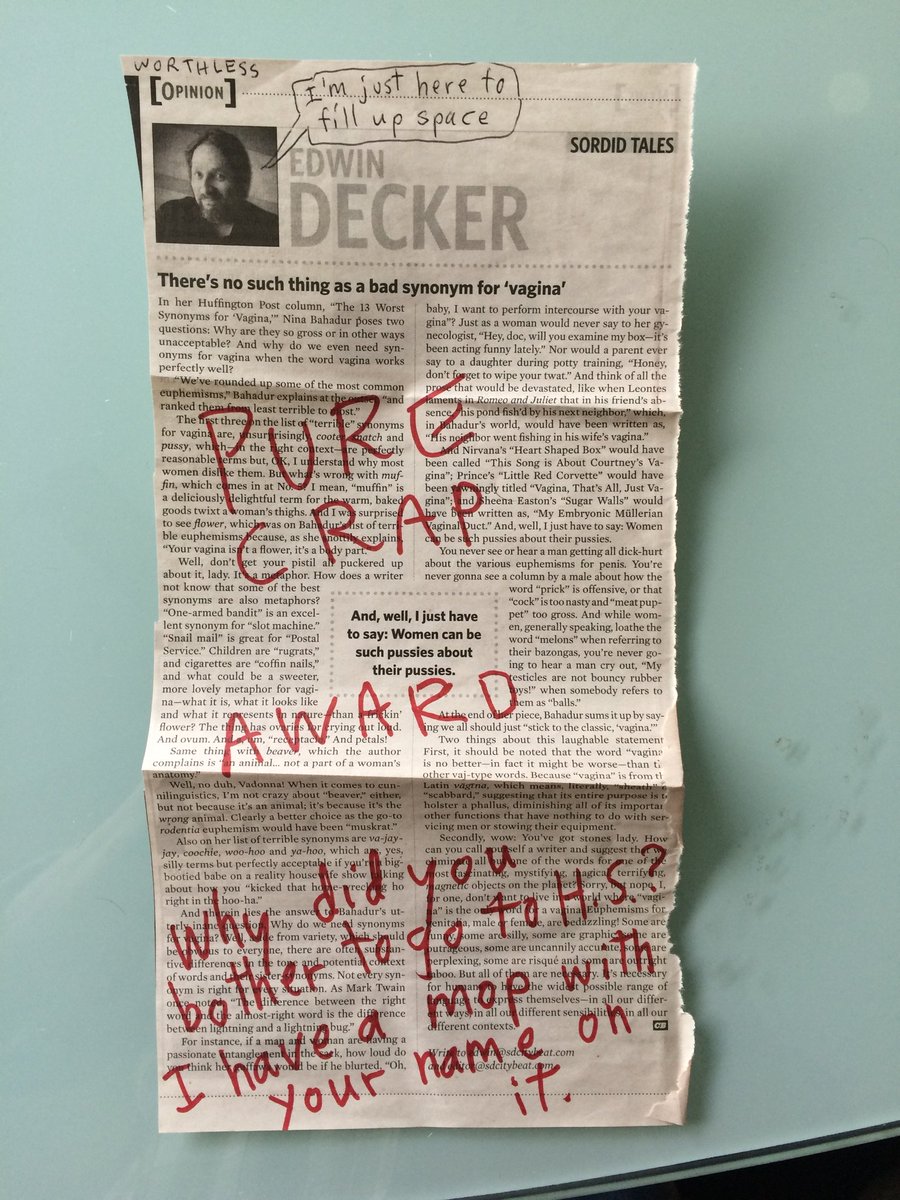 WORTHLESS
[OPINION]
I'm just here to
fill up space
SORDID TALES
EDWIN
DECKER
There's no such thing as a bad synonym for 'vagina'
In her Huffington Post column, "The 13 Worst
Synonyms for 'Vagina,'" Nina Bahadur poses two
questions: Why are they so gross or in other ways
unacceptable? And why do we even need syn-
onyms for vagina when the word vagina works
perfectly well?
"We've rounded up some of the most common
euphemisms," Bahadur explains at the "and
ranked them from least terrible to most."
The first three on the list of "terrible" synonyms
for vagina are, unsurprisingly, cooter, snatch and
pussy, which—in the right context—are perfectly
reasonable terms but, OK, I understand why most
women dislike them. But what's wrong with muf-
fin, which comes in at No. I mean, "muffin" is
a deliciously delightful term for the warm, baked
goods twixt a woman's thighs. And I was surprised
to see flower, which was on Bahadur's list of terri-
ble euphemisms because, as she explains
"Your vagina isn't a flower, it's a body part."
Well, don't get your pistil all puckered up
about it, lady. It's a metaphor. How does a writer
not know that some of the best
synonyms are also metaphors?
"One-armed bandit" is an excel-
lent synonym for "slot machine."
"Snail mail" is great for "Postal
Service." Children are "rugrats,"
and cigarettes are "coffin nails,"
and what could be a sweeter,
more lovely metaphor for vagi-
na—what it is, what it looks like
and what it represents in nature—than a fuckin'
flower? The thing has ovaries for crying out loud.
And ovum. And "receptacle." And petals!
Same thing with beaver, which the author
complains is "an animal... not a part of a woman's
anatomy."
Well, no duh, Vadonna! When it comes to cun-
nilinguistics, I'm not crazy about "beaver," either,
but not because it's an animal; it's because it's the
wrong animal. Clearly a better choice as the go-to
rodentia euphemism would have been "muskrat."
Also on her list of terrible synonyms are va-jay-
jay, coochie, woo-hoo and ya-hoo, which are, yes,
silly terms but perfectly acceptable if you're a big-
bootied babe on a reality housewife show talking
about how you "kicked that home-wrecking ho
right in the hoo-ha."
And the answer to Bahadur's
Why do we need synonyms
for vagina? Well, aside from variety, which should
be obvious to everyone, there are often substan-
tive differences in the tone and potential context
of words and their synonyms. Not every syn-
onym is right for every situation. As Mark Twain
once noted, "The difference between the right
word and the almost-right word is the difference
between lightning and a lightning bug."
For instance, if a man and woman are having a
passionate entanglement in the sack, how loud do
you think her guffaw would be if he blurted, "Oh,
baby, I want to perform intercourse with your va-
gina"? Just as a woman would never say to her gy-
necologist, "Hey, doc, will you examine my box—it's
been acting funny lately." Nor would a parent ever
say to a daughter during potty training, "Honey,
don't forget to wipe your twat." And think of all the
prose that would be devastated, like when Leontes
laments in Romeo and Juliet that in his friend's ab-
sence, "his pond fish'd by his next neighbor," which,
in Bahadur's world, would have been written as,
"His neighbor went fishing in his wife's vagina."
And Nirvana's "Heart Shaped Box" would have
been called "This Song is About Courtney's Va-
gina"; Prince's "Little Red Corvette" would have
been titled "Vagina, That's All, Just Va-
gina"; and Sheena Easton's "Sugar Walls" would
have been written as, "My Embryonic Müllerian
Vaginal Tract." And, well, I just have to say: Women
can be such pussies about their pussies.
You never see or hear a man getting all dick-hurt
about the various euphemisms for penis. You're
never gonna see a column by a male about how the
word "prick" is offensive, or that
"cock" is too nasty and "meat pup-
pet" too gross. And while wom-
en, generally speaking, loathe the
word "melons" when referring to
their bazongas, you're never go-
ing to hear a man cry out, "My
testicles are not bouncy rubber
toys!" when somebody refers to
them as "balls."
And, well, I just have
to say: Women can be
such pussies about
their pussies.
At the end of her piece, Bahadur sums it up by say-
ing we all should just "stick to the classic, 'vagina.'"
Two things about this laughable statement
First, it should be noted that the word "vagina
is no better—in fact it might be worse—than
other vaj-type words. Because "vagina" is from
Latin vāgīna, which means, literally, "sheath"
"scabbard," suggesting that its entire purpose is
holster a phallus, diminishing all of its
other functions that have nothing to do with ser-
vicing men or stowing their equipment.
Secondly, wow: You've got stones lady. How
can you call yourself a writer and suggest
one of the words for one of
most fascinating, mystifying, magical, terrifying,
magnetic objects on the planet? Sorry, but nope, I,
for one, don't want to live in a world where "vagi-
na" is the only word for a vagina. Euphemisms for
genitalia, male and female, are bedazzling! Some are
some are silly, some are graphic, some are
outrageous, some are uncannily accurate, some are
perplexing, some are risqué and some are
taboo. But all of them are necessary. It is necessary
for humans to have the widest possible range of
themselves—in all our differ-
in all our different sensibilities, in all our
different contexts.
CB
Write to ed@sdcitybeat.com
and editor@sdcitybeat.com.
PURE
CRAP
AWARD
Why did you
bother to go to H.S.?
I have a mop with
your name on
it.